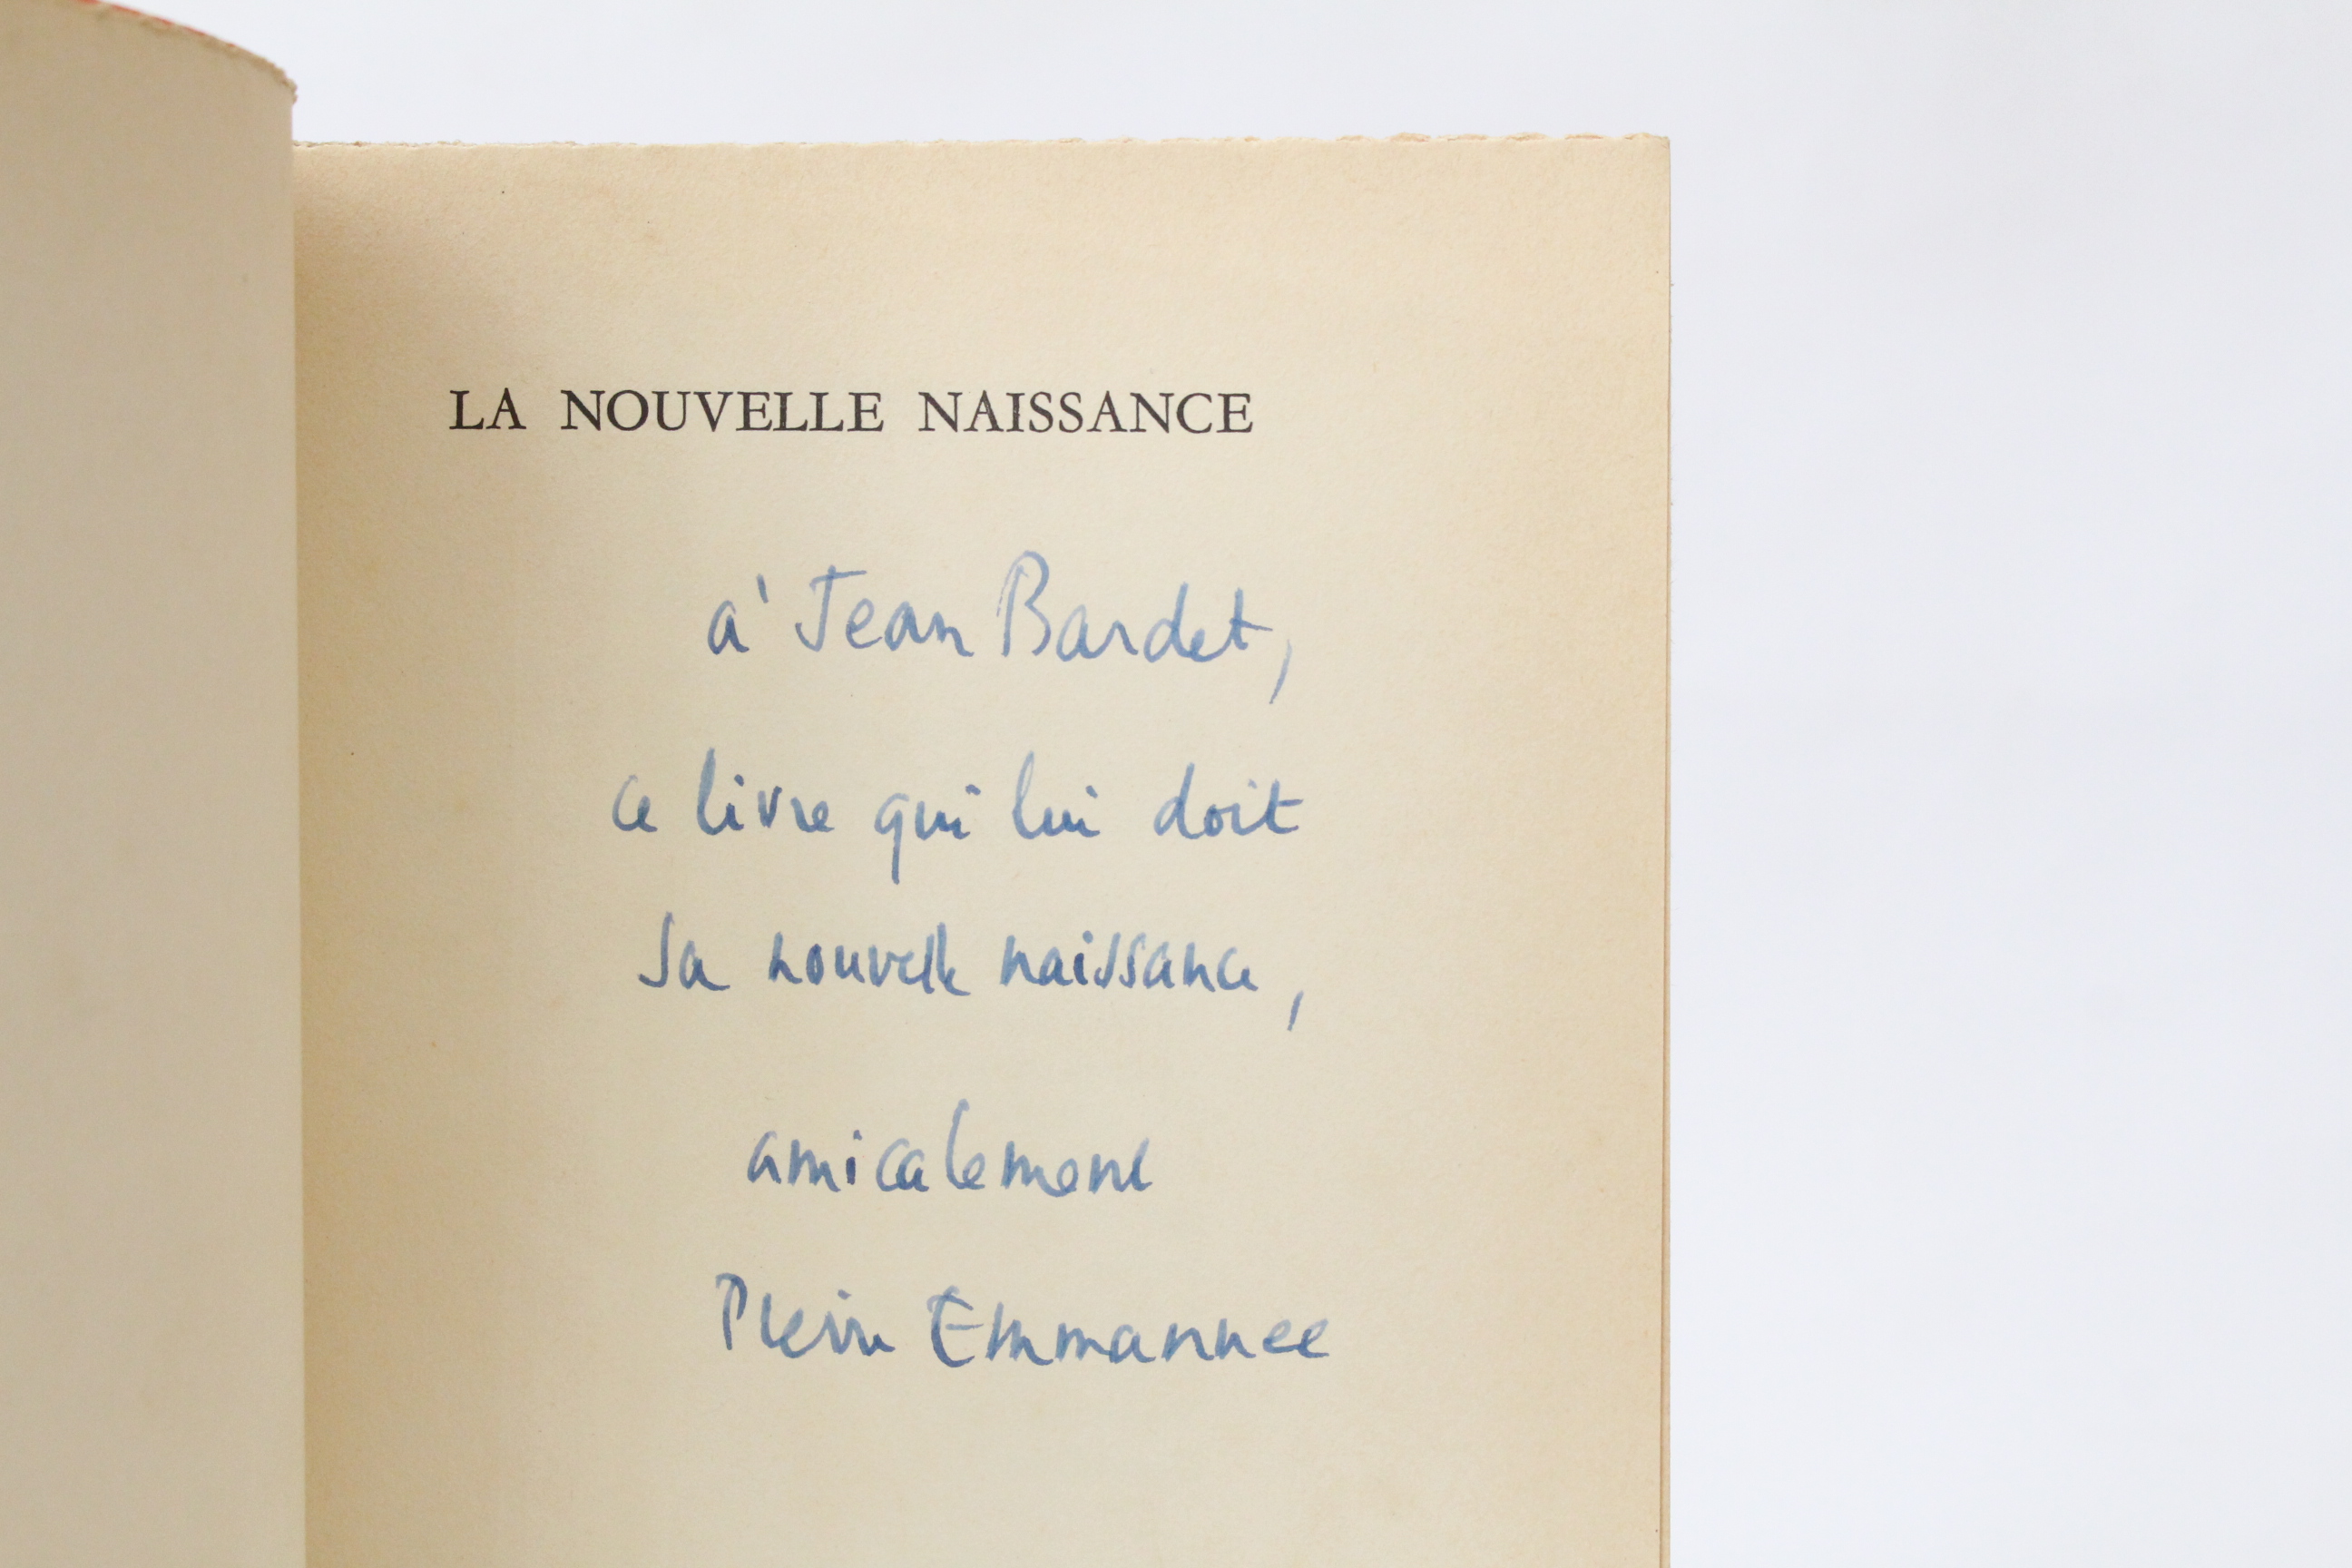 LA NOUVELLE NAISSANCE
à Jean Bardet,
ce livre qui lui doit
sa nouvelle naissance,
amicalement
Pierre Emmanuel